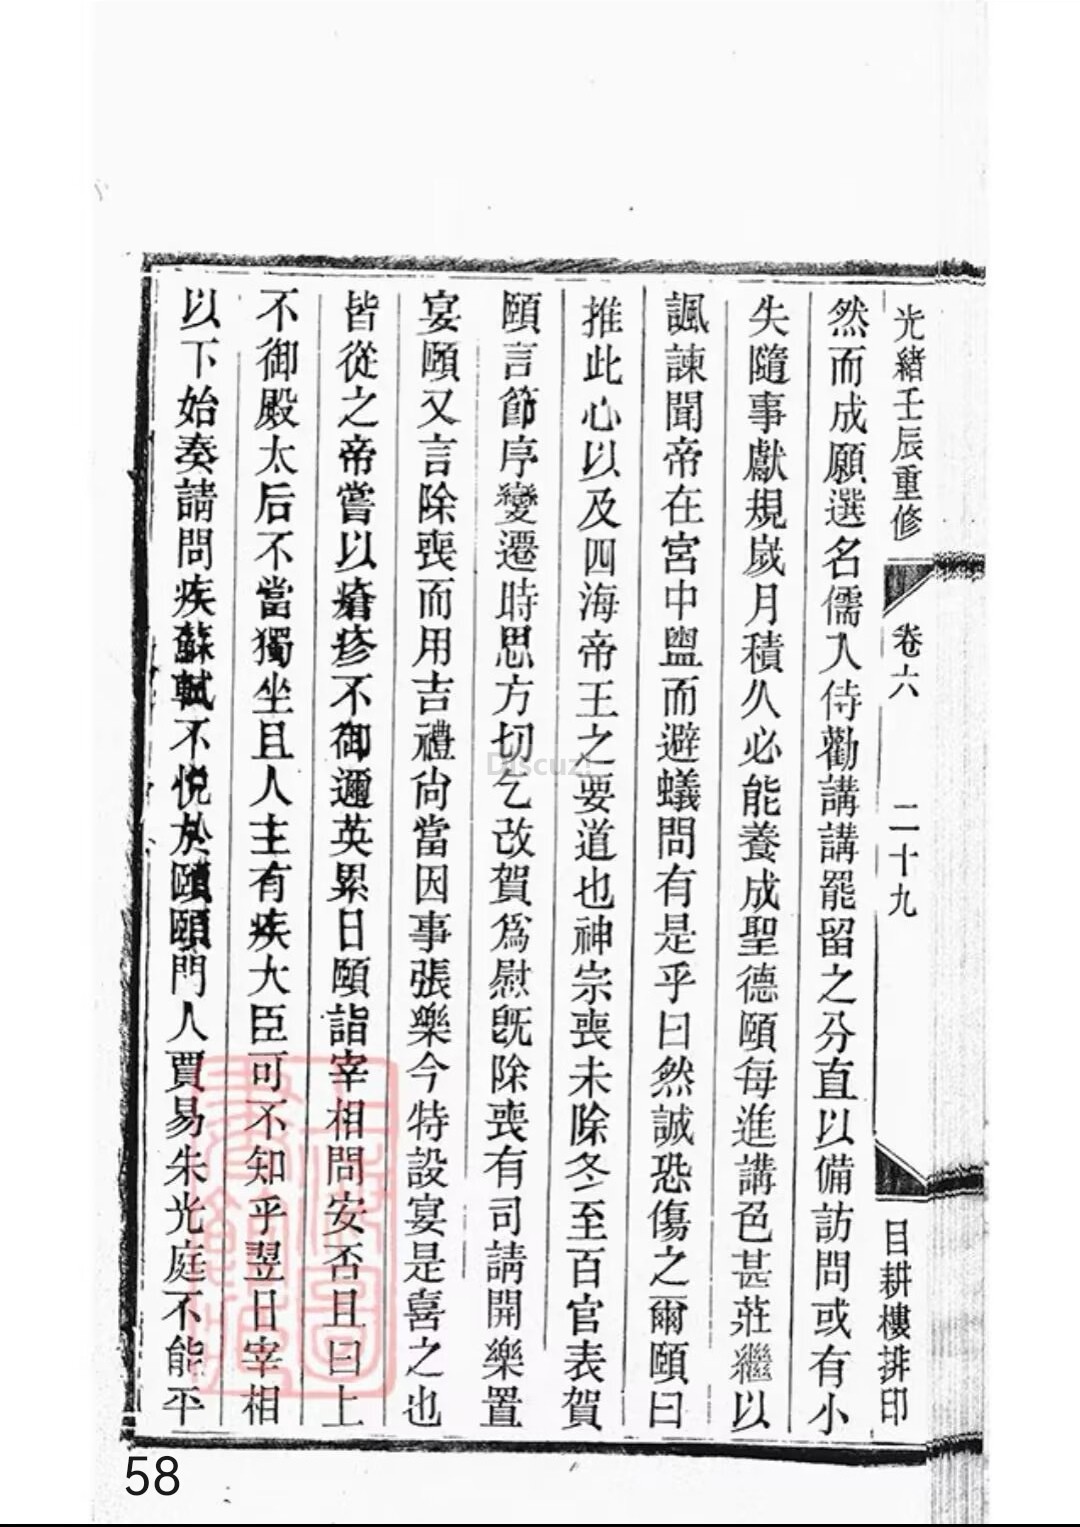 光緒壬辰重修 卷六 二十九 目耕樓排印
然而成願選名儒入侍勸講講罷留之分直以備訪問或有小
失隨事獻規歲月積久必能養成聖德頤每進講色甚莊繼以
諷諫聞帝在宮中盥而避蟻問有是乎曰然誠恐傷之爾頤曰
推此心以及四海帝王之要道也神宗喪未除冬至百官表賀
頤言節序變遷時思方切乞改賀為慰既除喪有司請開樂置
宴頤又言除喪而用吉禮尚當因事張樂今特設宴是喜之也
皆從之帝嘗以瘡疹不御邇英累日頤詣宰相問安否且曰上
不御殿太后不當獨坐且人主有疾大臣可不知乎翌日宰相
以下始奏請問疾蘇軾不悅於頤頤門人賈易朱光庭不能平
上海圖
書館藏
Discuz!
58